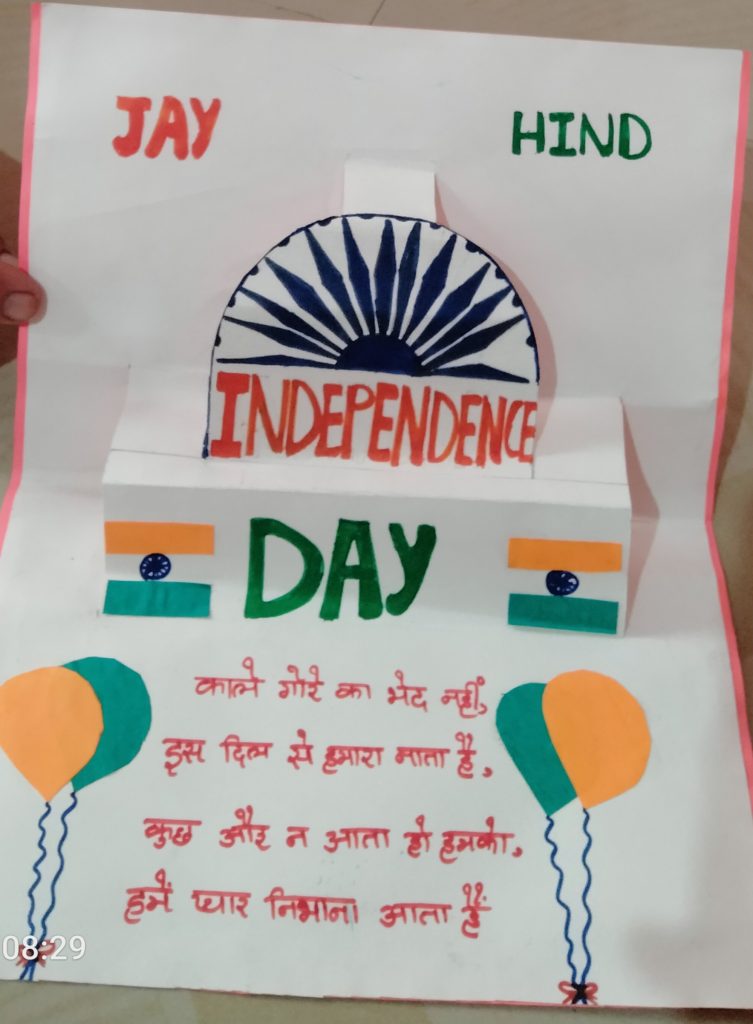 JAY HIND
INDEPENDENCE
DAY
काले गोरे का भेद नहीं,
इस दिल से हमारा नाता है,
कुछ और न आता हो हमको,
हमें प्यार निभाना आता हैं
08:29